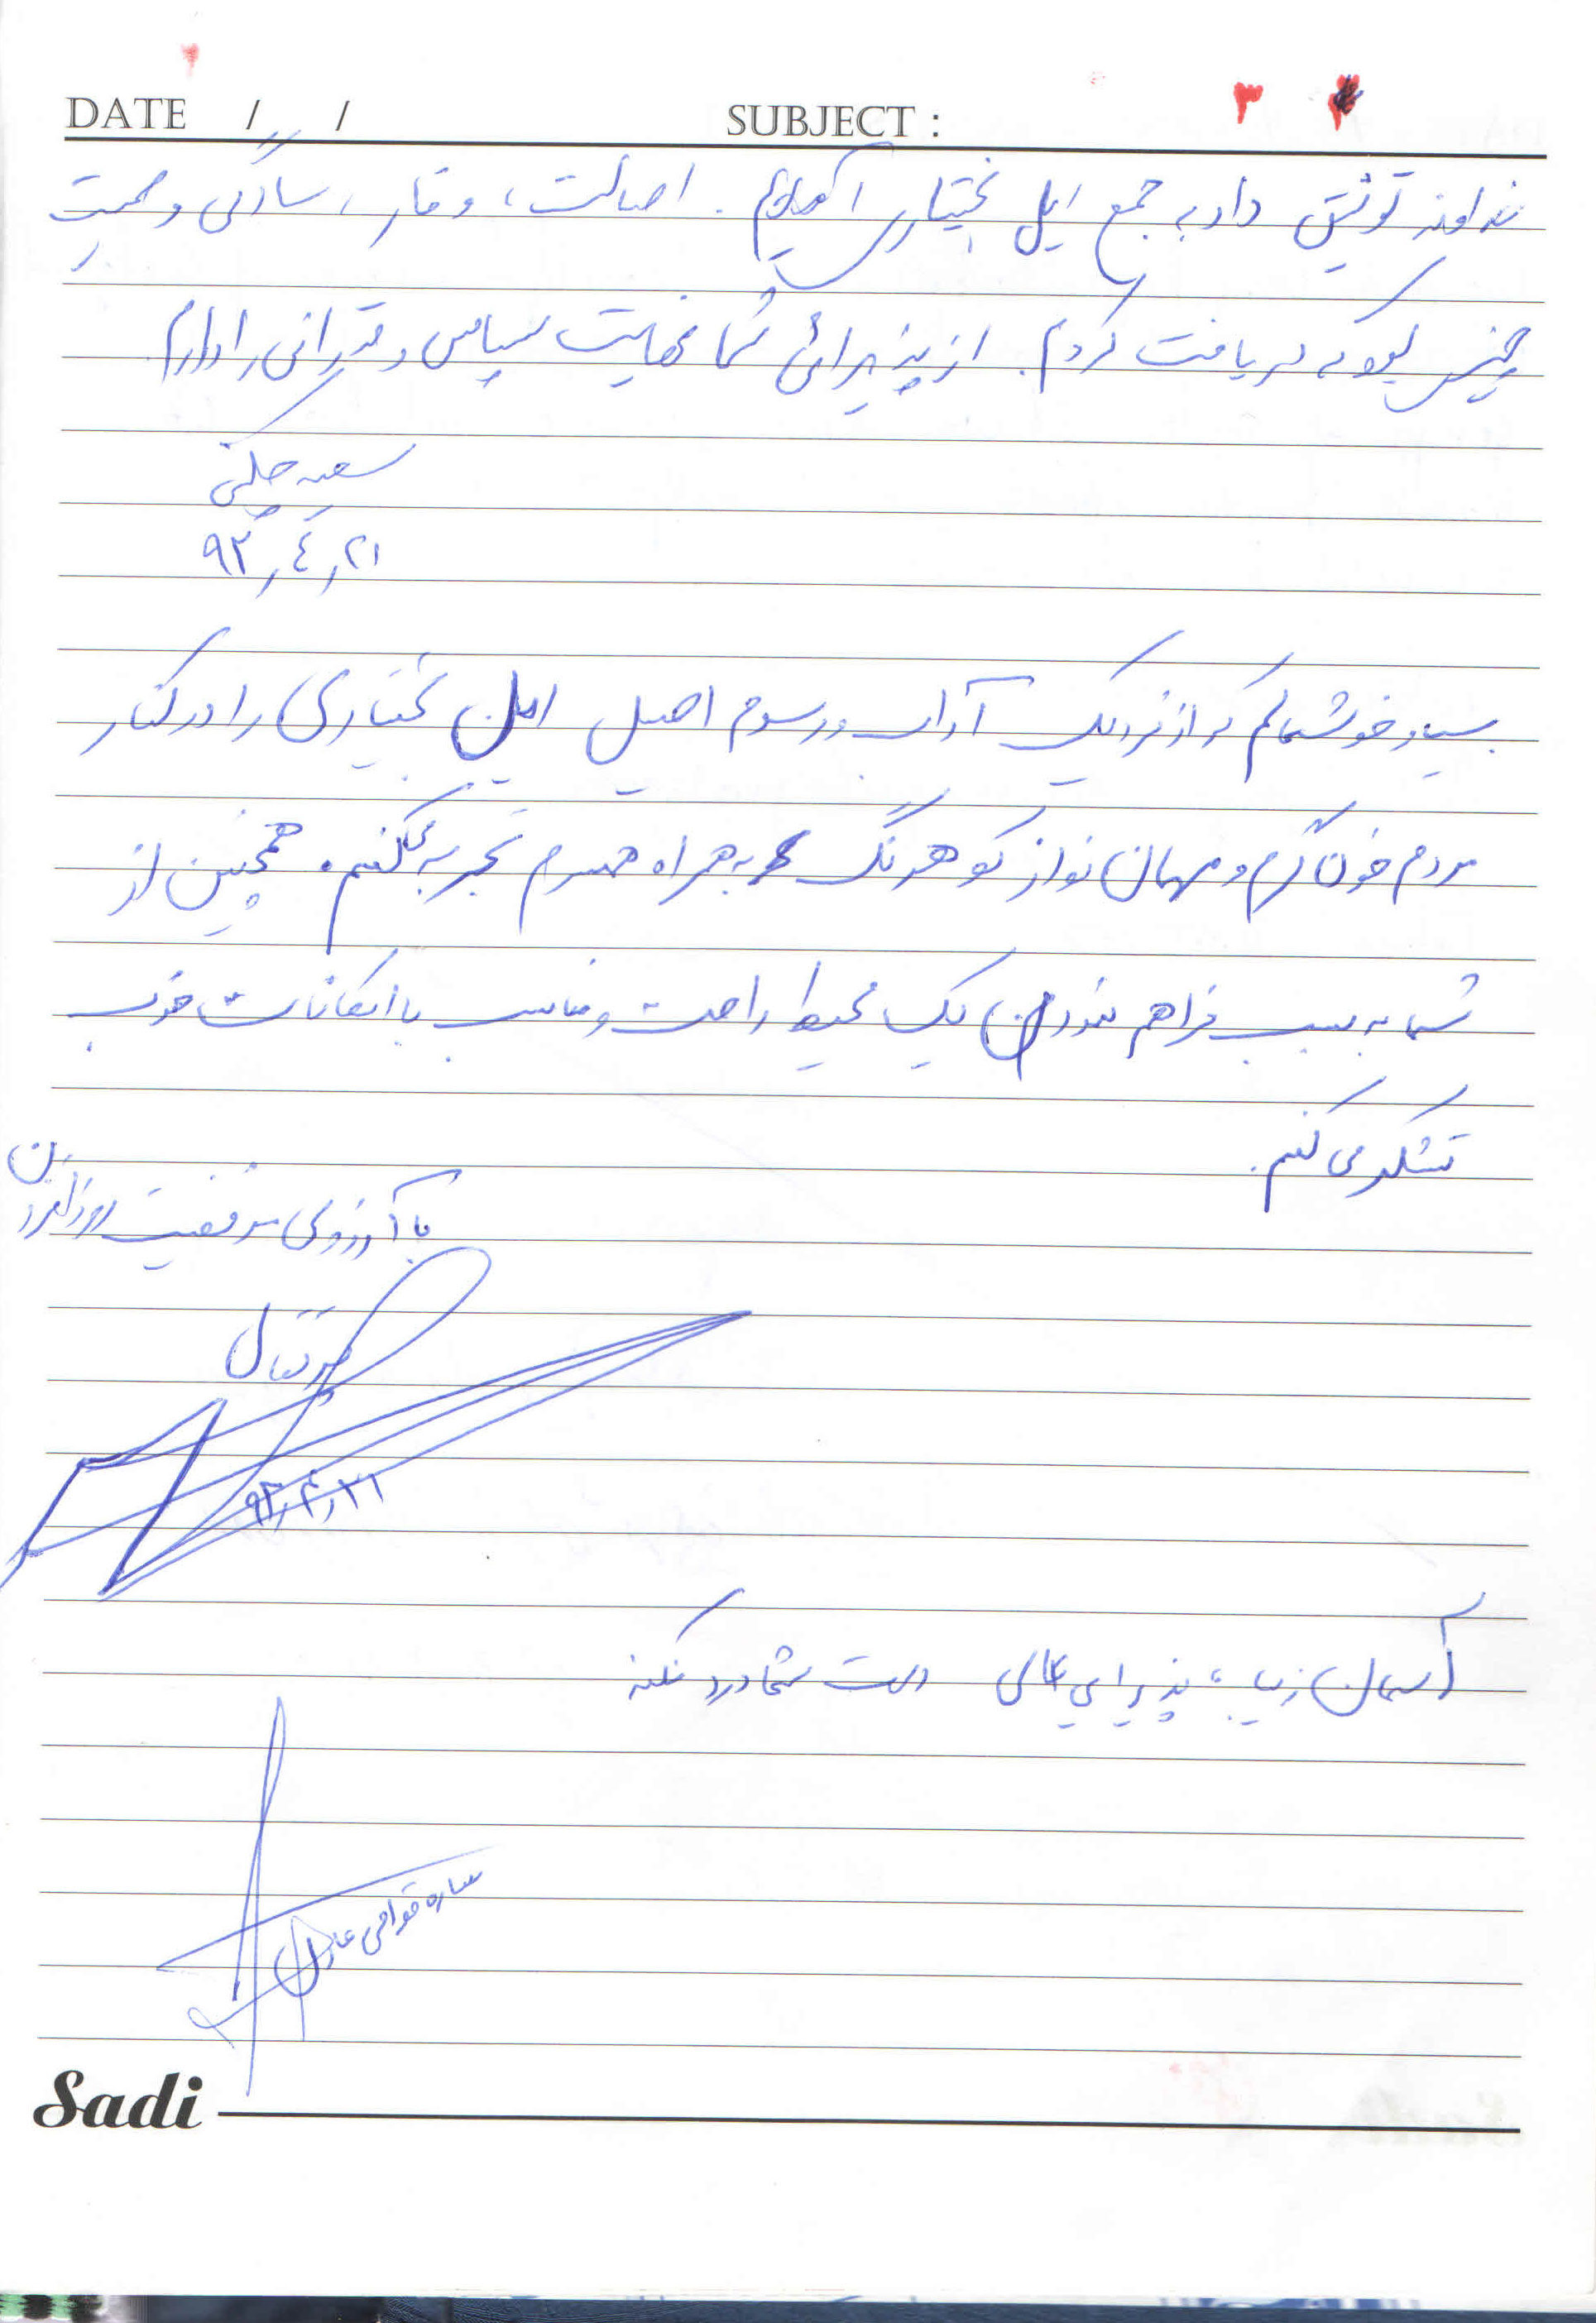 DATE / /
SUBJECT :
۳
خداوند توفیق داد به جمع ایل بختیاری . اصالت، وقار، سادگی و صمیمیت
دریافت کردم. از پذیرائی شما نهایت سپاس و قدردانی را دارم
سعید
۹۳٫۴٫۲۱
بسیار خوشحالم که از نزدیک آداب و رسوم اصیل ایل بختیاری را در کنار
مردم خون گرم و مهمان نواز کوهرنگ به همراه همسرم تجربه میکنم. همچنین از
شما به سبب فراهم نمودن یک محیط راحت و مناسب با امکانات خوب
تشکر می کنم.
با آرزوی موفقیت روزافزون
۹۳٫۴٫۲۱
آسمان زیبا، پذیرایی عالی دست شما درد نکنه
ساره قوامی عادل
Sadi